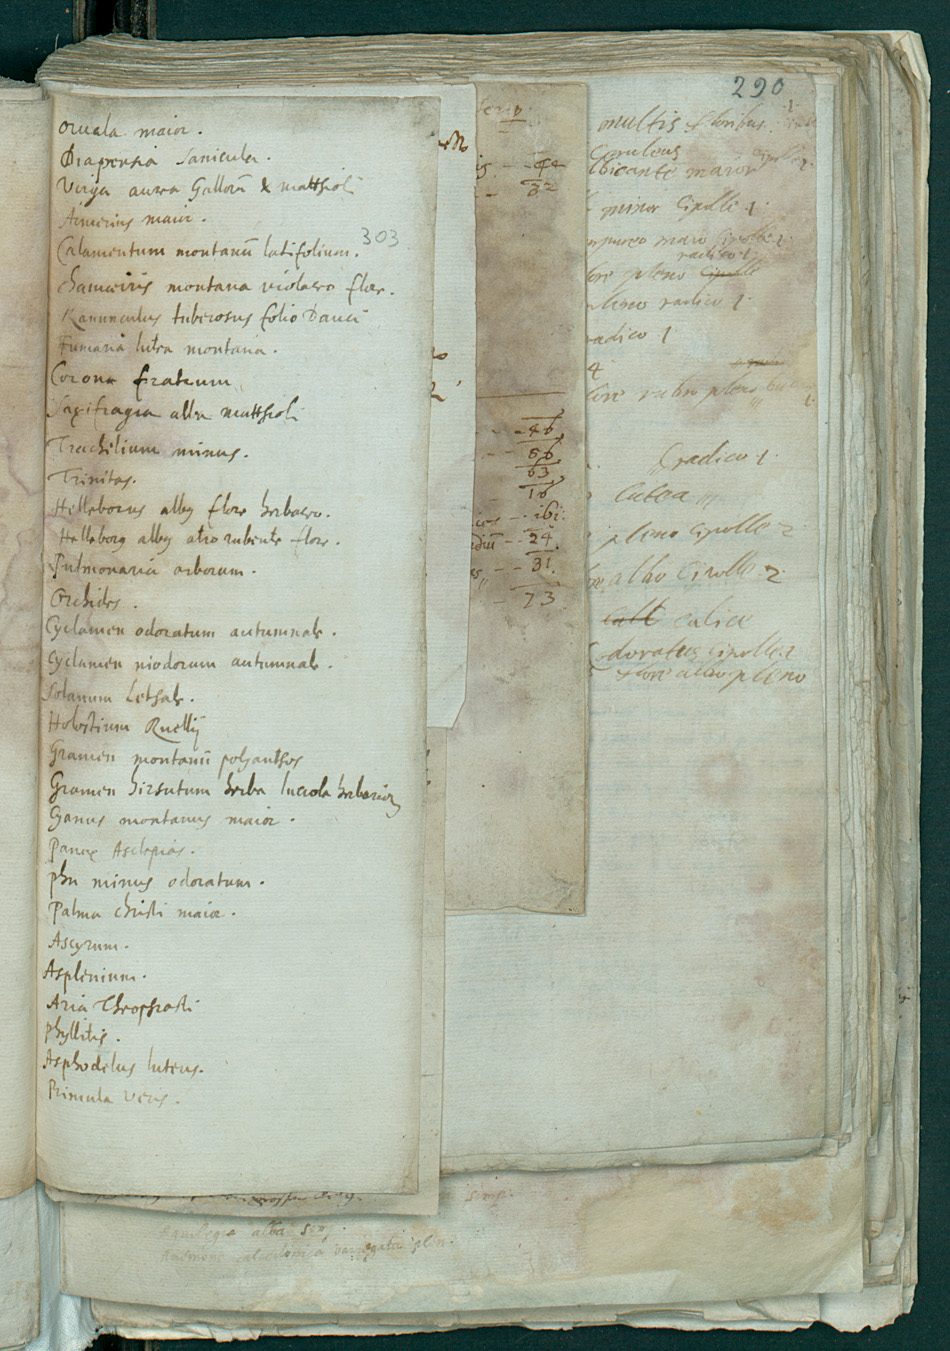 290
303
Orvala maior.
Diapensia Sanicula.
Virga aurea Gallorū & matthioli
Armerius maior.
Calamentum montanū latifolium.
Chamæiris montana violaceo flore.
Ranunculus tuberosus folio Dauci
Fumaria lutea montana.
Corona fratrum
Saxifragia alba matthioli
Trachilium minus.
Trinitas.
Helleborus albus flore herbaceo.
Helleborus albus atro rubente flore.
Pulmonaria arborum.
Orchides.
Cyclamen odoratum autumnale.
Cyclamen niodorum autumnale.
Solanum Lethale.
Holostium Ruellij
Gramen montanū polyanthos
Gramen hirsutum herba luciola herbariorum
Cyanus montanus maior.
Panax Asclepias.
phu minus odoratum.
Palma christi maior.
Ascyrum.
Asplenium.
Aria Theophrasti
phyllitis.
Asphodelus luteus.
Primula veris.
-44
32
-46
56
63
16
- ibi:
- 24
- 31.
- 73
multis floribus 1
Cœruleus
maior Cipolle 2
minor Cipolle 1
maio Cipolle 2
radice 1
pleno Cipolle
pleno radice 1
radice 1
4
flore rubro pleno
radice 1
pleno Cipolle 2
albo Cipolle 2
calt calice
odoratus Cipolle 2
flore albo pleno
alba sem
Anemone calcedonica variegata plen.